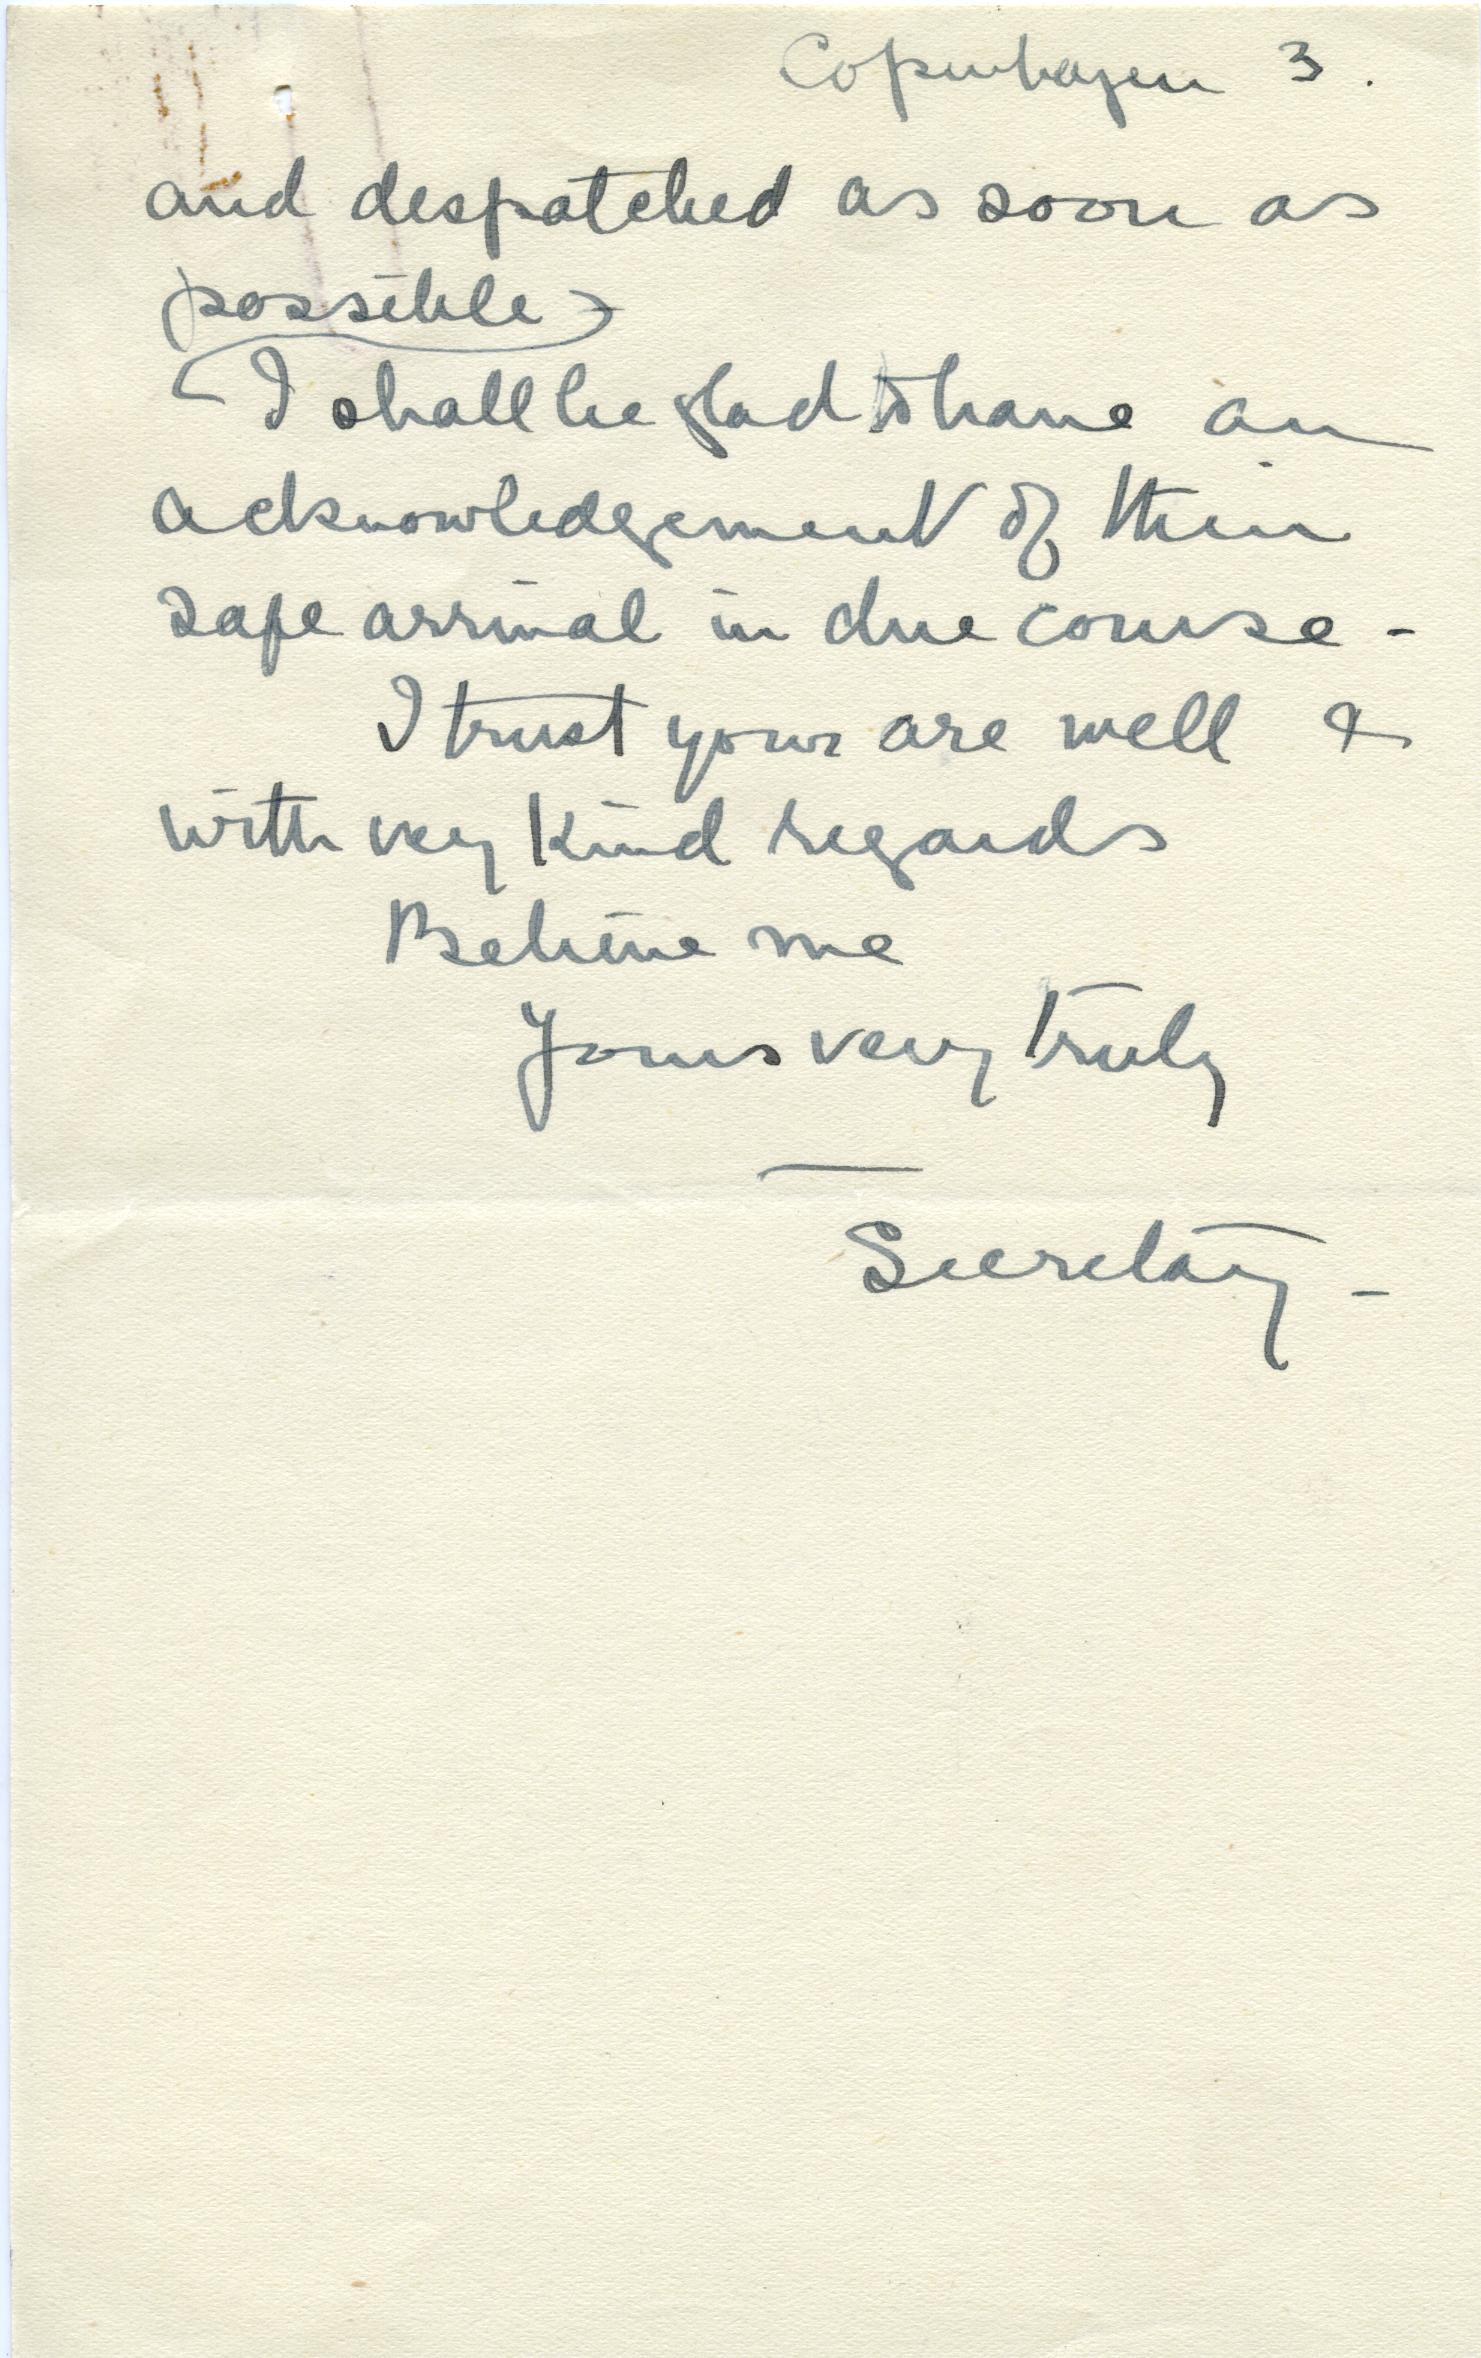 Copenhagen 3.
and despatched as soon as
possible
I shall be glad to have an
acknowledgement of their
safe arrival in due course -
I trust you are well &
with very kind regards
Believe me
Yours very truly
Secretary -